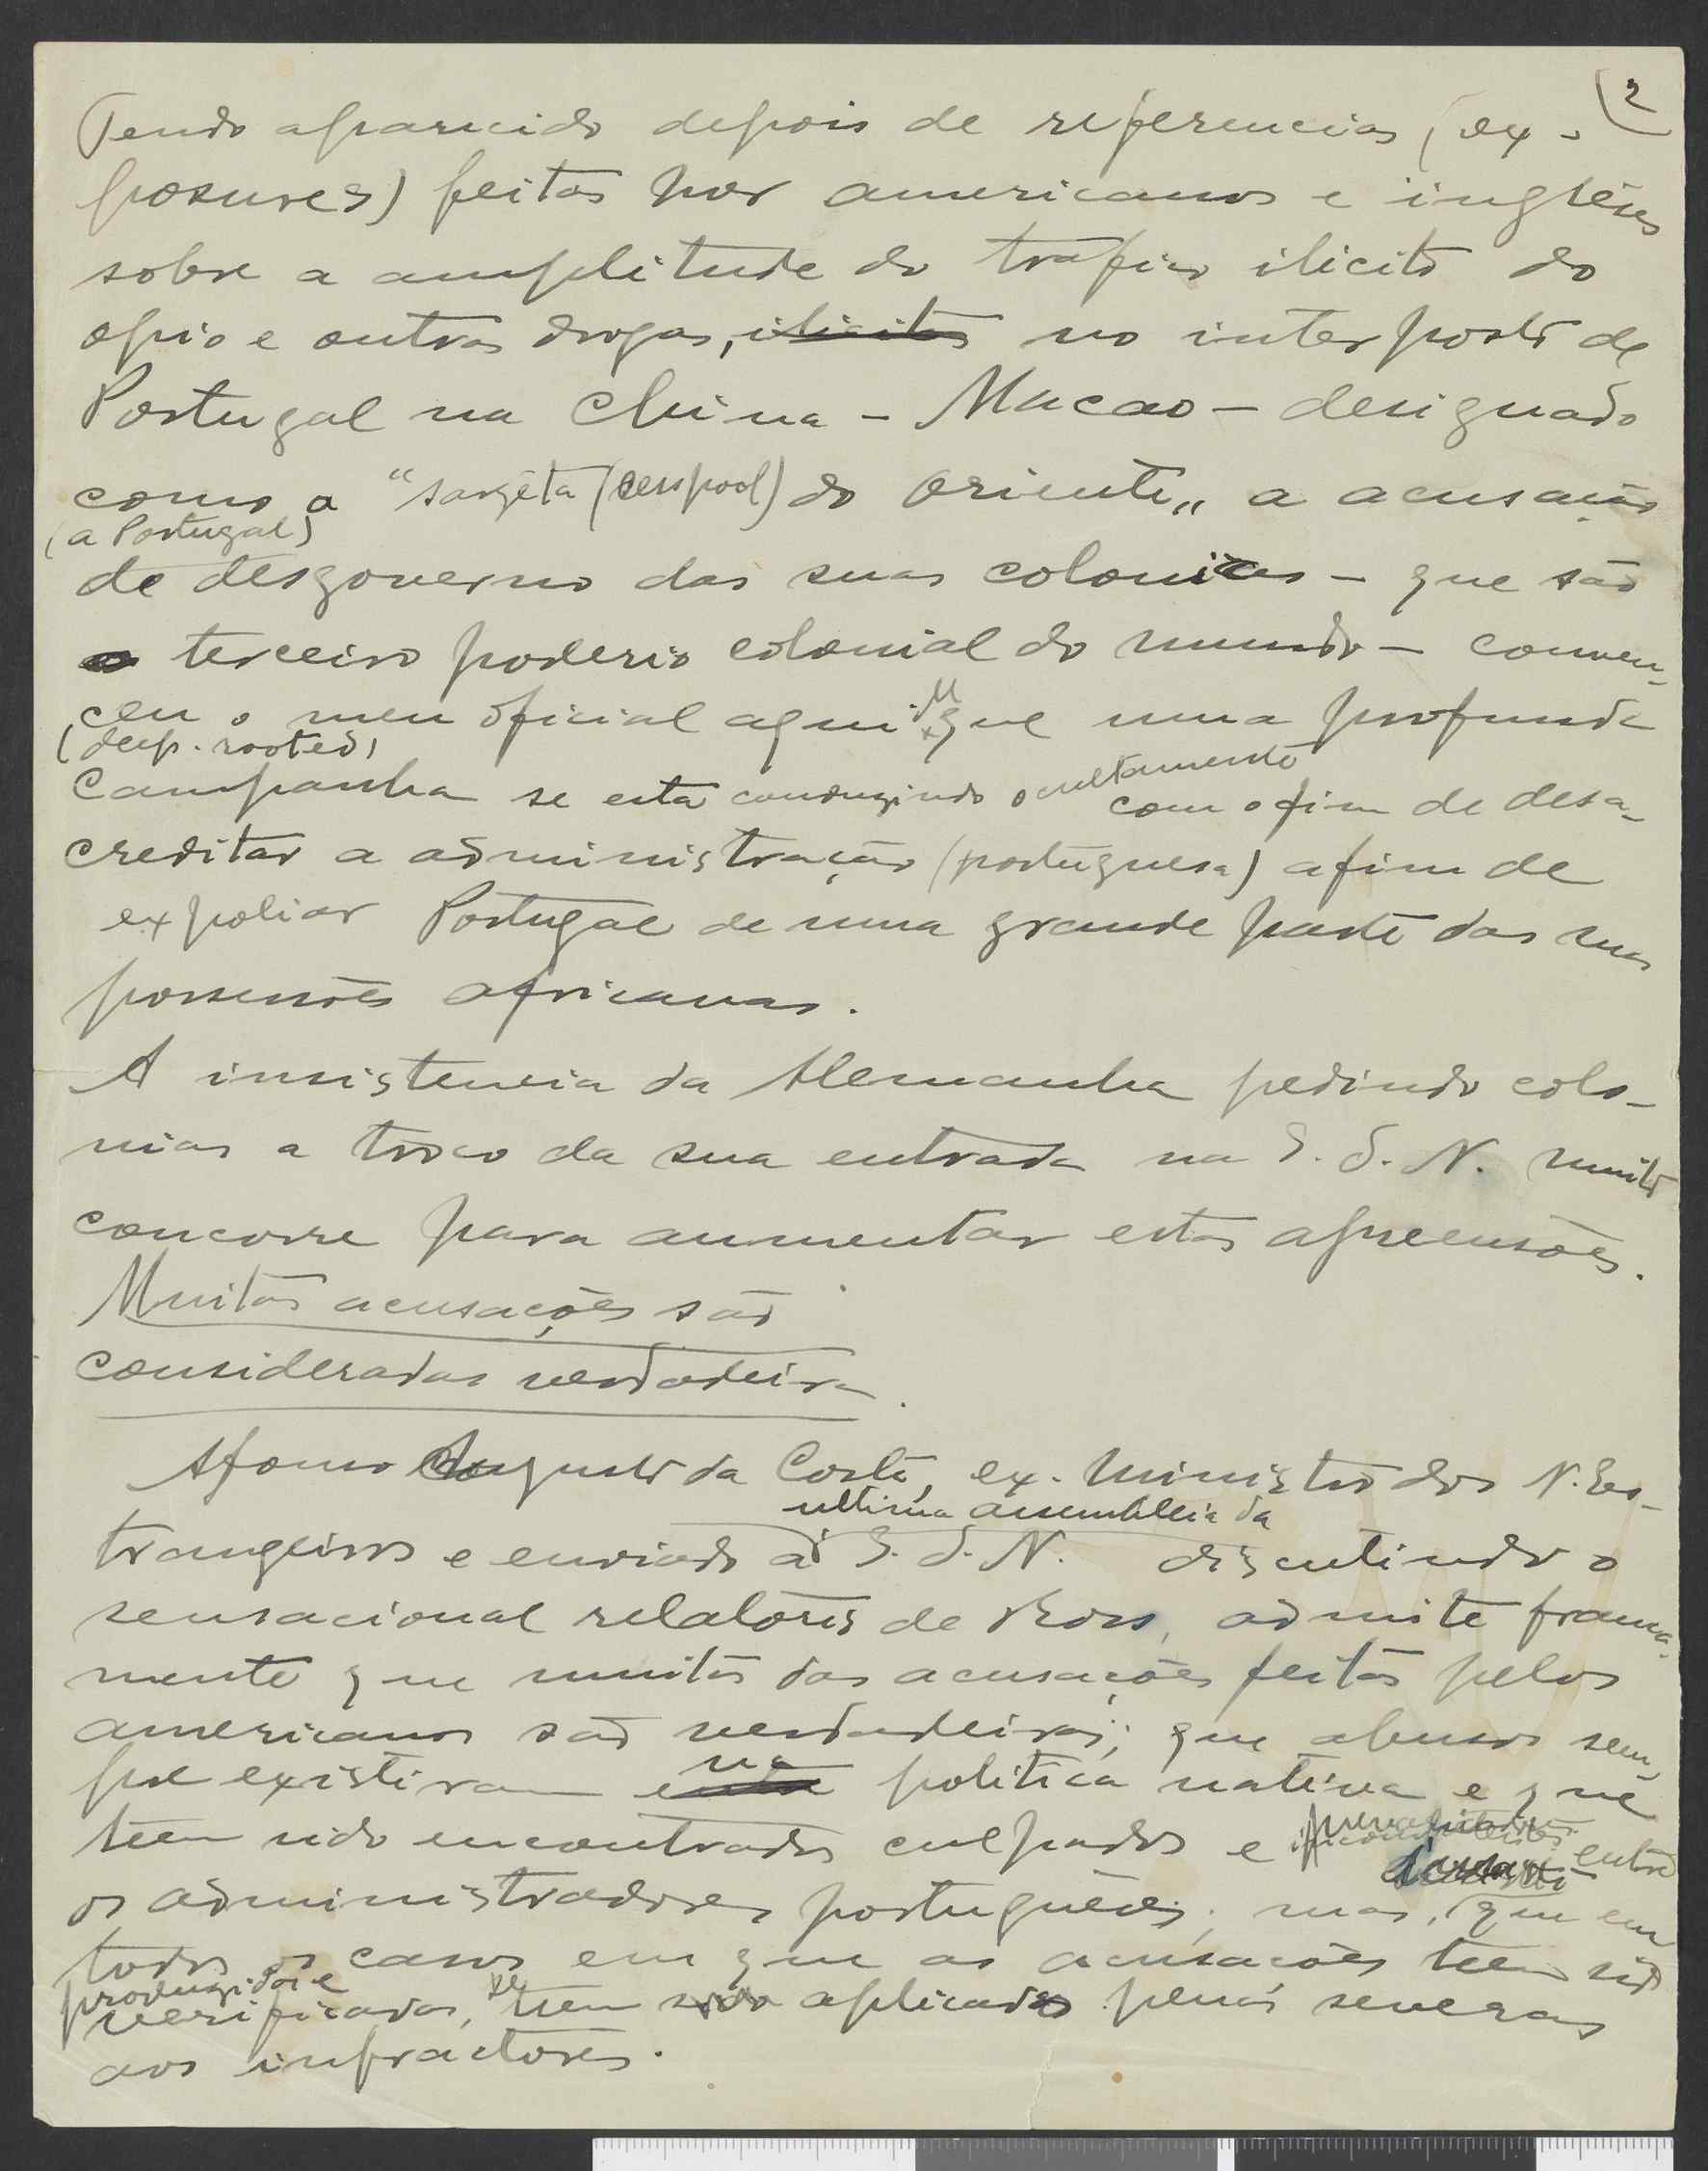 2
Tendo aparecido depois de referencias (ex-
posures) feitas por americanos e inglêses
sobre a amplitude do trafico ilicito do
opio e outras drogas, ilicitas no interposto de
Portugal na China - Macao - designado
como a "sargêta (cesspool) do Oriente" a acusação
(a Portugal)
de desgoverno das suas colonias - que são
o terceiro poderio colonial do mundo - conven-
ceu o meu oficial aqui que uma profunda
(deep-rooted)
campanha se está conduzindo ocultamente com o fim de desa-
creditar a administração (portuguesa) afim de
expoliar Portugal de uma grande parte das suas
possessões africanas.
A insistencia da Alemanha pedindo colo-
nias a troco da sua entrada na S. d. N. muito
concorre para aumentar estas apreensões.
Muitas acusações são
consideradas verdadeiras.
Afonso Augusto da Costa, ex-Ministro dos N. Es-
ultima assembleia da
trangeiros e enviado à S. d. N. discutindo o
sensacional relatorio de Ross, admite franca-
mente que muitas das acusações feitas pelos
americanos são verdadeiras; que abusos sem-
na
pre existiram politica nativa e que
teem sido encontrados culpados e incompetentes entre
os administradores portuguêses; mas, que em
todos os casos em que as acusações teem sido
produzidas e
verificadas, se teem sido aplicado penas severas
aos infractores.